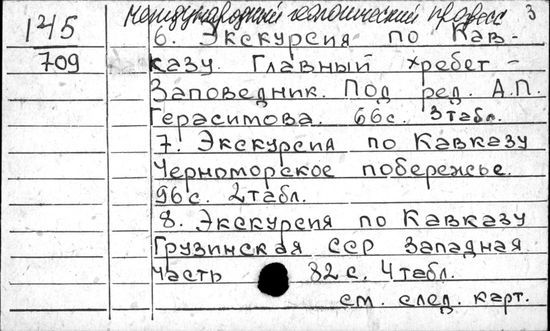 международный геологический прогресс 3
145
709
6. Экскурсия по Кав-
казу. Главный хребет -
Заповедник. Под ред. А.П.
Герасимова. 66с. 3табл.
7. Экскурсия по Кавказу
Черноморское побережье.
96с. 2табл.
8. Экскурсия по Кавказу
Грузинская ССР Западная
часть 82с. 4табл.
см. след. карт.